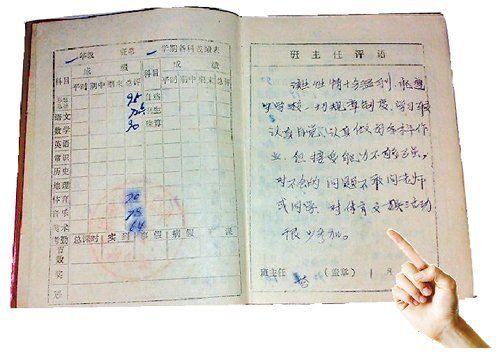 一年级 班 第一学期各科成绩表
科目 成绩 科目 成绩
平时 期中 期末 总评 平时 期中 期末 总评
95 自然
语文 72
数学 90 珠算
英语
常识
历史
地理
体育 70
音乐 78
美术 64
总课时 实到 事假 病假
奖
班主任评语
该生性情十分温和,能遵
守学校一切规章制度,学习很
认真自觉,认真做好各科作
业,但接受能力不够强,
对不会的问题不敢问老师
或同学,对体育文娱活动
很少参加。
班主任 (盖章) 1月